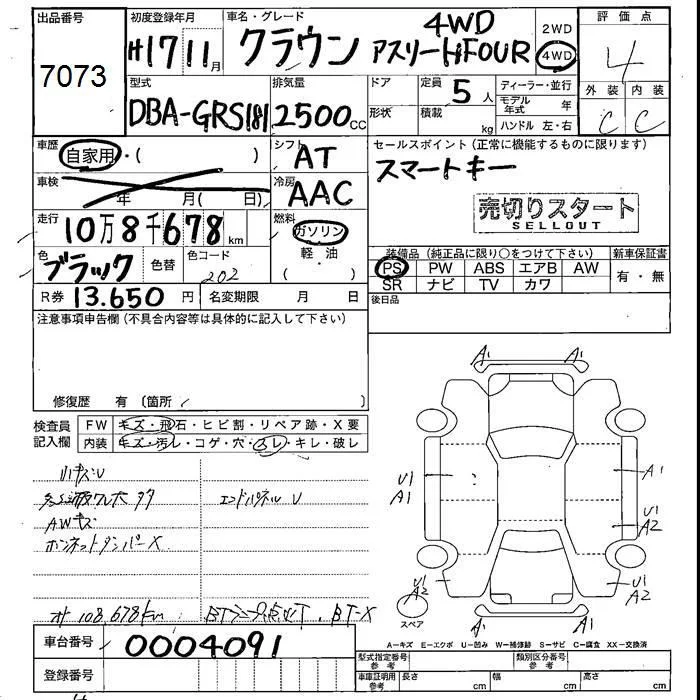 出品番号
7073
初度登録年月
H17 11月
車名・グレード
クラウン 4WD アスリートiFOUR
2WD
4WD
評価点
4
外装 内装
C C
型式
DBA-GRS181
排気量
2500cc
ドア
形状
定員 5人
積載 kg
ディーラー・並行
モデル年式 年
ハンドル 左・右
車歴
自家用・( )
シフト
AT
セールスポイント (正常に機能するものに限ります)
スマートキー
車検
年 月( 日)
冷房
AAC
売切りスタート
SELLOUT
走行
10万8千678km
燃料
ガソリン
軽・油
( )
色
ブラック
色替
色コード
202
装備品 (純正品に限り○をつけて下さい)
新車保証書
PS PW ABS エアB AW
有・無
SR ナビ TV カワ
R券 13.650円
名変期限 月 日
後日品
注意事項申告欄 (不具合内容等は具体的に記入して下さい)
修復歴 有 (箇所
検査員
記入欄
FW キズ・飛石・ヒビ割・リペア跡・X要
内装 キズ・汚レ・コゲ・穴・スレ・キレ・破レ
小キズU
エンドパネルU
AWキズ
ボンネットダンパーX
108,678km
BT-X
A1 A1
U1
A1
A1
U1
A2
U1
A2
A1 A1
スペア
A
A−キズ E−エクボ U−凹み W−補修跡 S−サビ C−腐食 XX−交換済
車台番号
0004091
登録番号
型式指定番号
参考
類別区分番号
参考
車庫証明用
参考
長さ cm
幅 cm
高さ cm